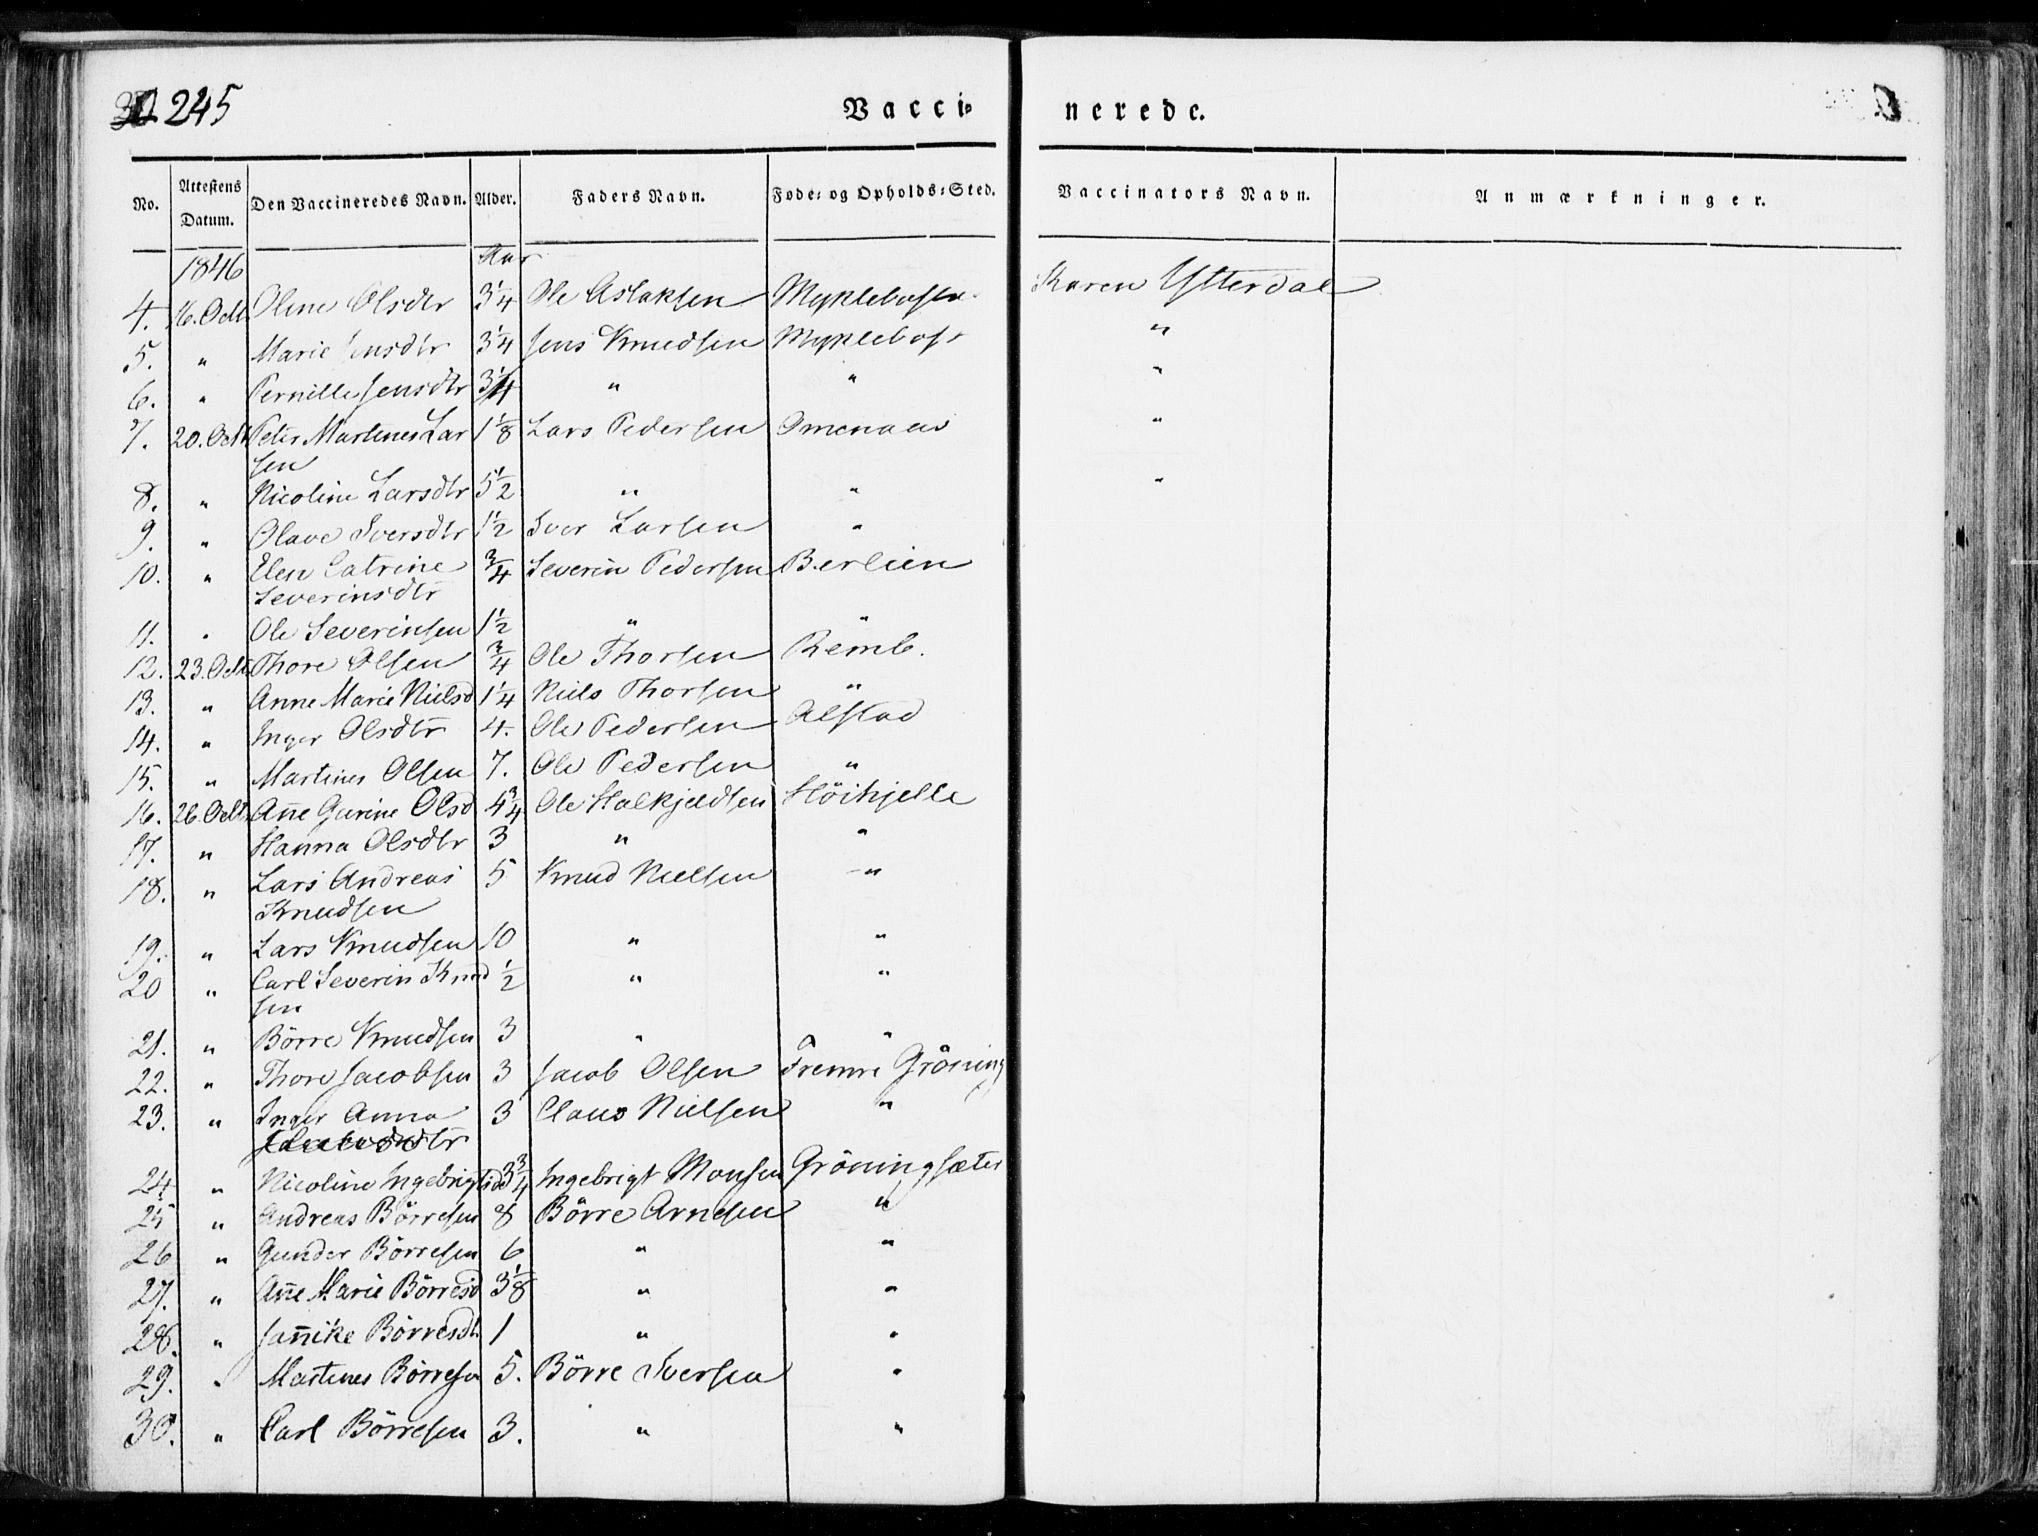 245
Vacci-
nerede.
No. Attestens Datum. Den Vaccineredes Navn. Alder. Faders Navn. Føde- og Opholds-Sted. Vaccinators Navn. Anmærkninger.
1846 Aar
4. 16. Octb Oline Olsdtr 3 1/4 Ole Aslaksen Karen Ytterdal
5. " Marie Jensdtr 3 1/4 Jens Knudsen Myklebost "
6. " Pernille Jensdtr " " "
7. 20. Octb Peter Martines Lar 1 1/8 Lars Pedersen Omenaas "
sen
8. " Nicoline Larsdtr 5 1/2 " " "
9. " Olave Iversdtr 1 1/2 Iver Larsen "
10. " Elen Catrine 3/4 Severin Pedersen Berlien
Severinsdtr
11. " Ole Severinsen 1 1/2 " "
12. 23. Octb Thore Olsen 3/4 Ole Thorsen Remb.
13. " Anne Marie Nielsd 1 1/4 Niels Thorsen "
14. " Inger Olsdtr 4. Ole Pedersen Alstad
15. " Martines Olsen 7. Ole Pedersen "
16. 26. Octb Añe Gurine Olsd 4 3/4 Ole Halkjeldsen Höihjelle
17. " Hanna Olsdtr 3 " "
18. " Lars Andreas 5 Knud Nielsen - "
Knudsen
19. " Lars Knudsen 10 " "
20 " Carl Severin Knud 1/2 " "
sen
21. " Börre Knudsen 3 " "
22. " Thore Jacobsen 3 Jacob Olsen Fremre Gröning
23. " Inger Anna 3 Claus Nielsen "
24 " Nicoline Ingebrigtsd 3 3/4 Ingebrigt Monsen Gröningsæter
25 " Andreas Börresen 8 Börre Arnesen "
26 " Gunder Börresen 6 " "
27. " Añe Marie Börresd 3 1/8 " "
28. " Jañike Börresdtr 1 " "
29. " Martines Börresen 5. Börre Iversen "
30. " Carl Börresen 3. " "